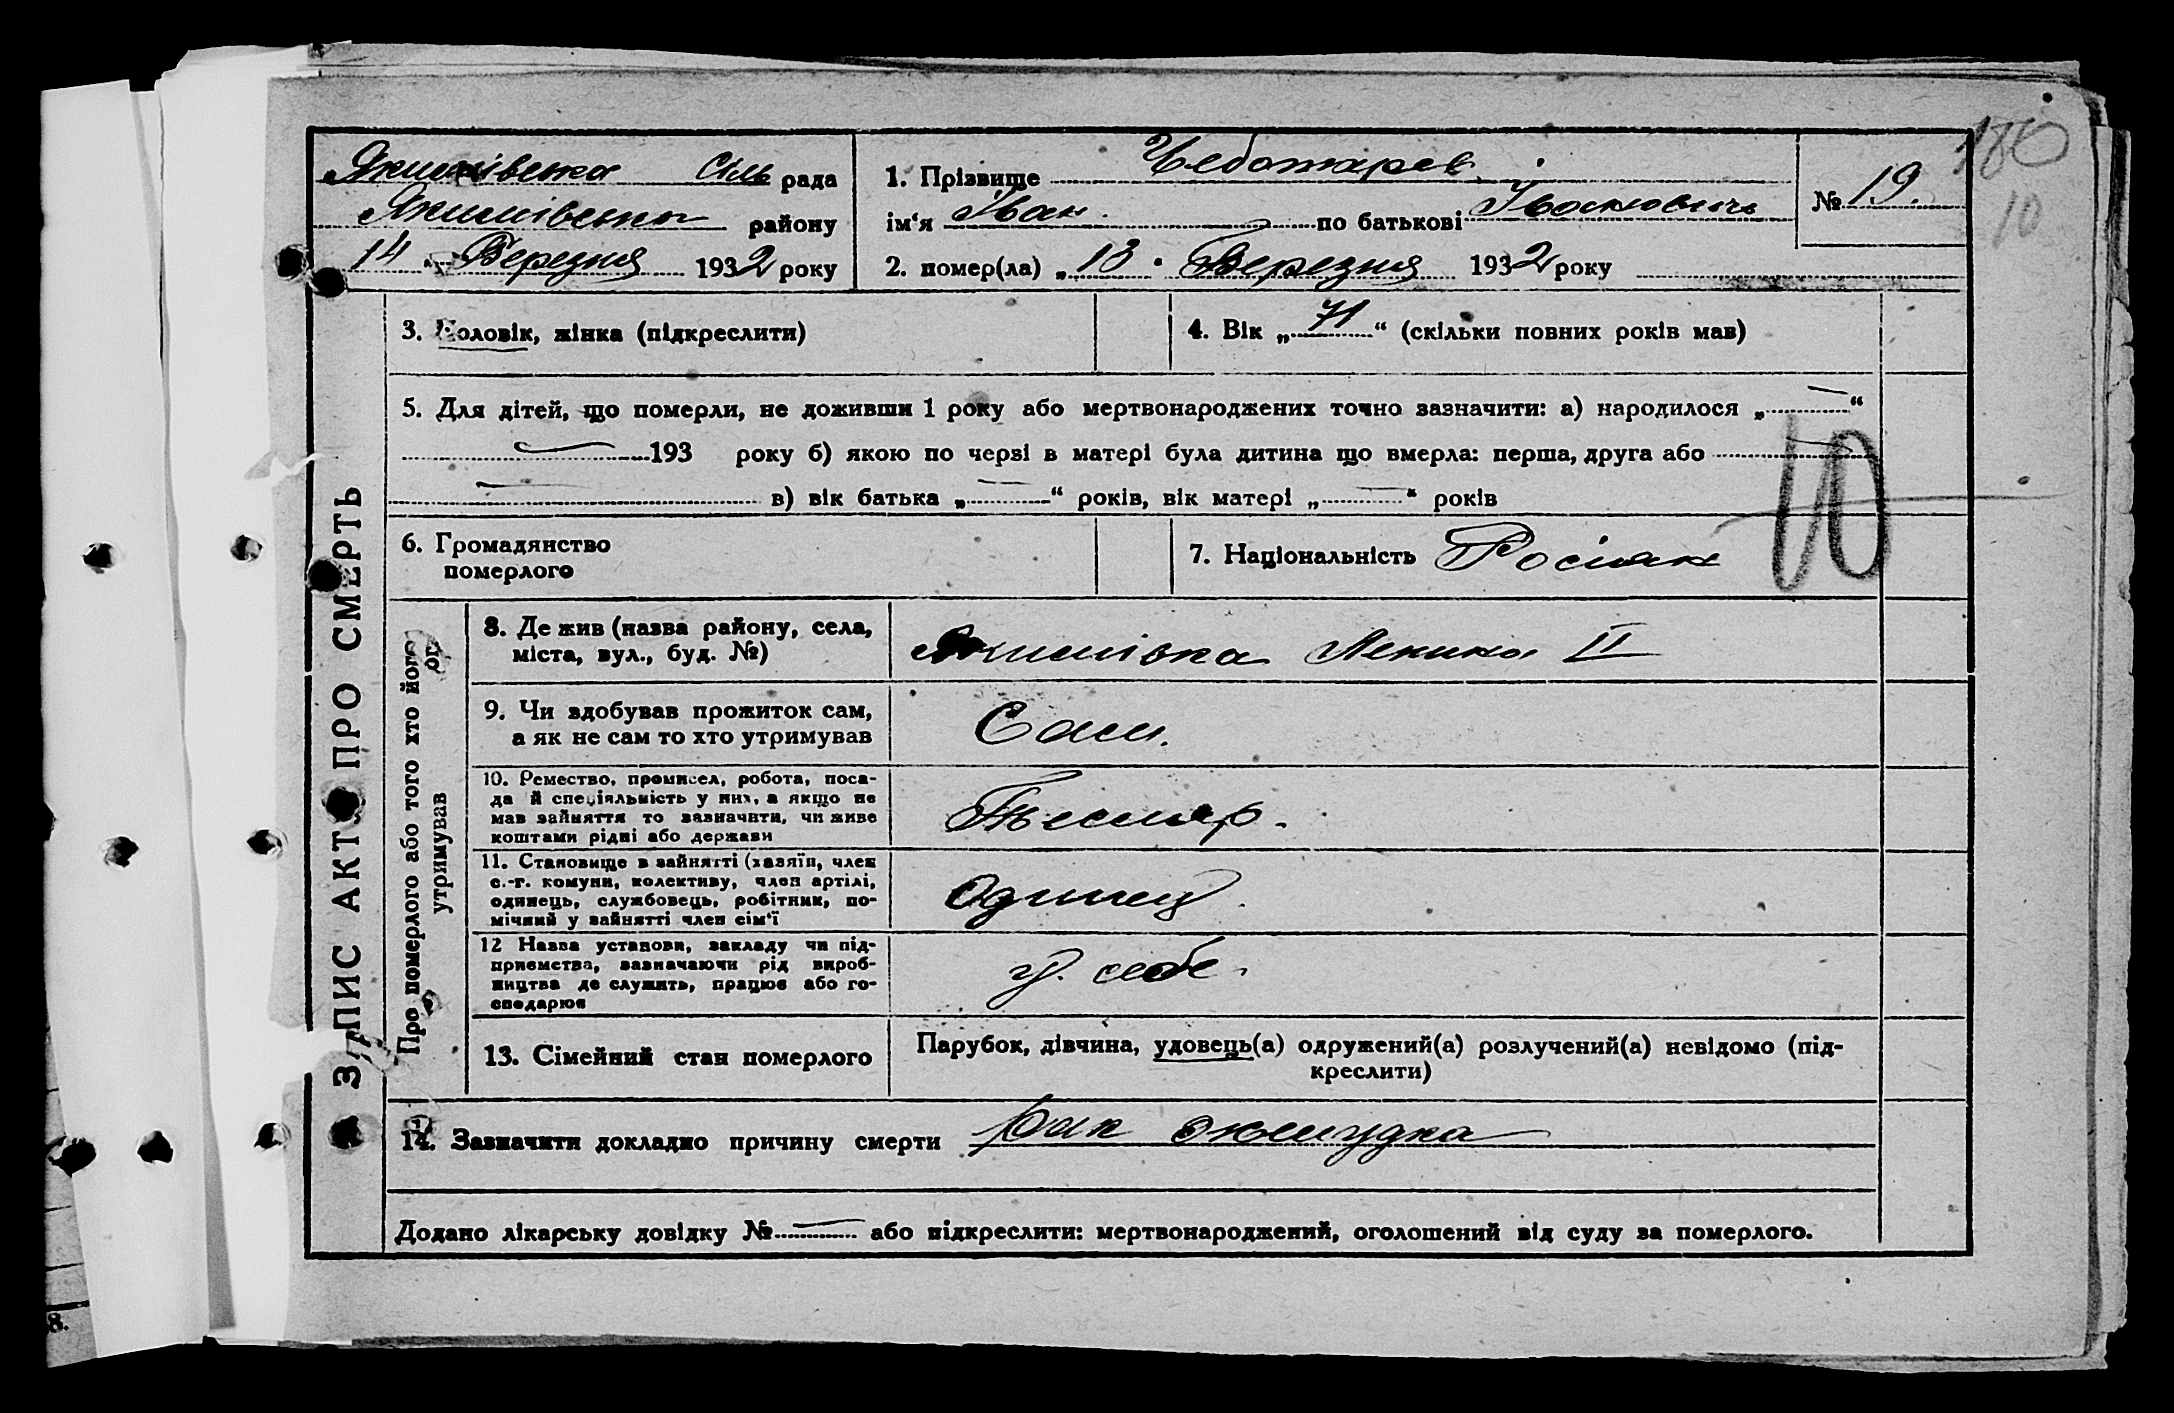 180
10
Якимівська Сіль рада
Якимівського району
14 Березня 1932 року
1. Прізвище Чеботарев
ім‘я Іван по батькові Іванович
2. помер(ла) „ 13 Березня 1932 року
№ 19.
3. Чоловік, жінка (підкреслити)
4. Вік „ 71 “ (скільки повних років мав)
5. Для дітей, що померли, не доживши 1 року або мертвонароджених точно зазначити: а) народилося „ — “
— 193 року б) якою по черзі в матері була дитина що вмерла: перша, друга або —
— в) вік батька „ — “ років, вік матері „ — “ років
10
6. Громадянство
померлого
7. Національність Росіян
ЗАПИС АКТУ ПРО СМЕРТЬ
Про померлого або того хто його
утримував
8. Де жив (назва району, села,
міста, вул., буд. №)
Якимівка Ленина II
9. Чи здобував прожиток сам,
а як не сам то хто утримував
Сам.
10. Ремество, промисел, робота, поса-
да й спеціяльність у них, а якщо не
мав зайняття то зазначити, чи живе
коштами рідні або держави
Тесляр.
11. Становище в зайнятті (хазяїн, член
с.-г. комуни, колективу, член артілі,
одинець, службовець, робітник, по-
мічний у зайнятті член сім‘ї
Одинец
12 Назва установи, закладу чи під-
приємства, зазначаючи рід вироб-
ництва де служить, працює або го-
сподарює
у себе.
13. Сімейний стан померлого
Парубок, дівчина, удовець(а) одружений(а) розлучений(а) невідомо (під-
креслити)
14. Зазначити докладно причину смерти рак жемудка
Додано лікарську довідку № — або підкреслити: мертвонароджений, оголошений від суду за померлого.
8.